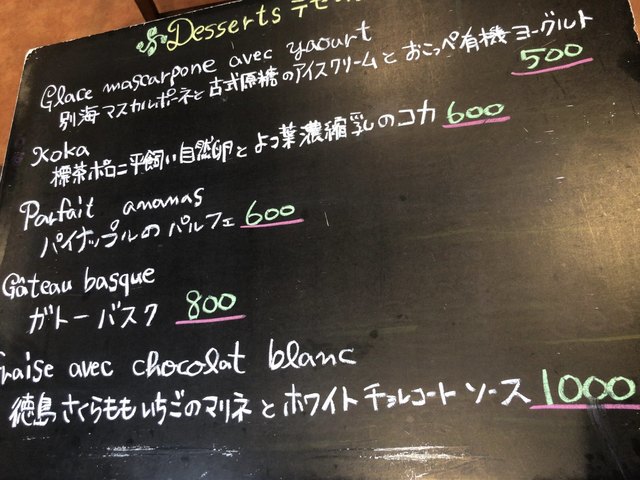 Desserts デセ
Glace mascarpone avec yaourt
別海マスカルポーネと古式原糖のアイスクリームとおこっぺ有機ヨーグルト 500
Koka
標茶ポロニ平飼い自然卵とよつ葉濃縮乳のコカ 600
Parfait ananas
パイナップルのパルフェ 600
Gâteau basque
ガトーバスク 800
raise avec chocolat blanc
徳島さくらももいちごのマリネとホワイトチョコレートソース 1000